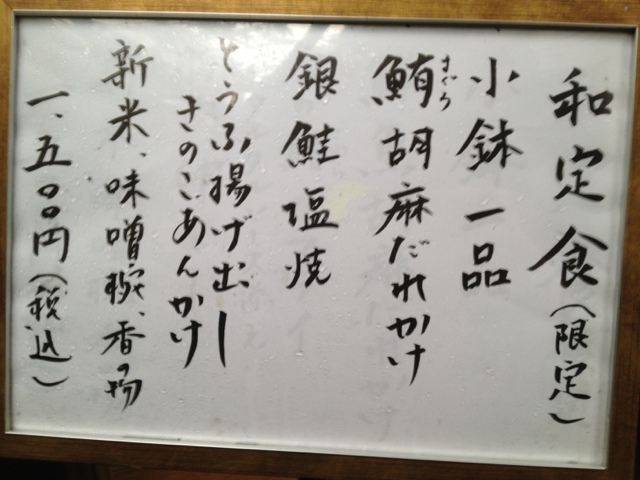 和定食（限定）
小鉢一品
鮪胡麻だれかけ
まぐろ
銀鮭塩焼
とうふ揚げ出し
きのこあんかけ
新米、味噌椀、香の物
一、五〇〇円（税込）